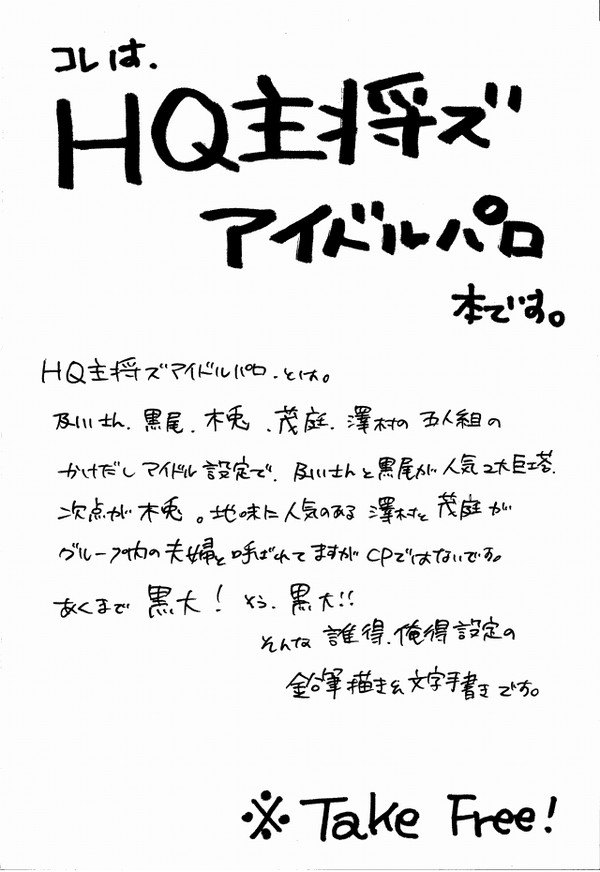 コレは、
HQ主将ズ
アイドルパロ
本です。
HQ主将ズアイドルパロ、とは。
及川さん、黒尾、木兎、茂庭、澤村の五人組の
かけだしアイドル設定で、及川さんと黒尾が人気2大巨塔、
次点が木兎。地味に人気のある澤村と茂庭が
グループ内の夫婦と呼ばれてますがCPではないです。
あくまで黒大!そう、黒大!!
そんな誰得、俺得設定の
鉛筆描き&文字手書きです。
※Take Free!